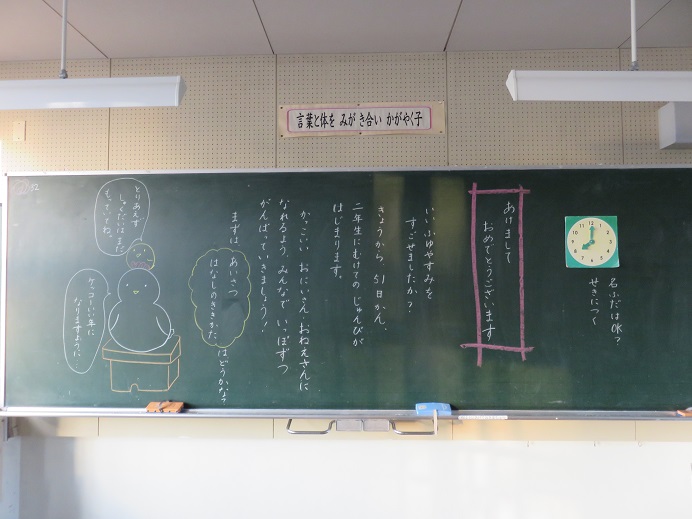 言葉と体を みがき合い かがやく子
名ふだはOK?
せきにつく
あけまして
おめでとうございます
いいふゆやすみを
すごせましたか?
きょうから、51日かん、
二年生にむけての じゅんびが
はじまります。
かっこいい おにいさん、おねえさんに
なれるよう、みんなで いっぽずつ
がんばっていきましょう!
まずは、あいさつ
はなしのききかた はどうかな?
とりあえず
しゅくだいはまだ
もっていてね。
ケッコーいい年に
なりますように…